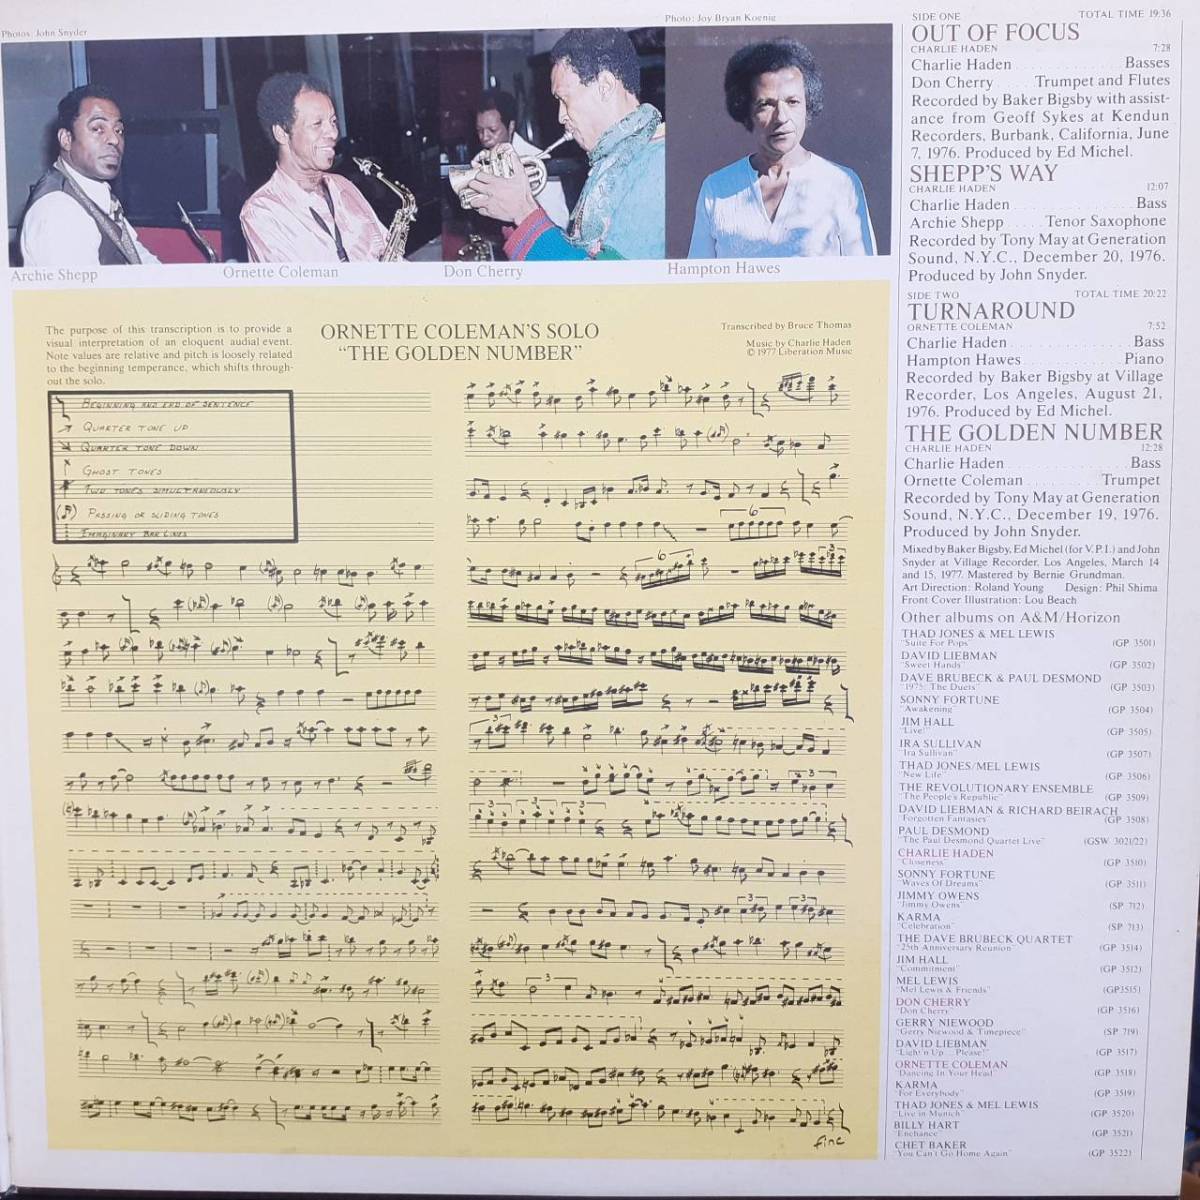 Photos: John Snyder
Photo: Joy Bryan Koenig
Archie Shepp
Ornette Coleman
Don Cherry
Hampton Hawes
The purpose of this transcription is to provide a
visual interpretation of an eloquent audial event.
Note values are relative and pitch is loosely related
to the beginning temperance, which shifts through-
out the solo.
ORNETTE COLEMAN'S SOLO
"THE GOLDEN NUMBER"
Transcribed by Bruce Thomas
Music by Charlie Haden
© 1977 Liberation Music
BEGINNING AND END OF SENTENCE
QUARTER TONE UP
QUARTER TONE DOWN
GHOST TONES
TWO TONES SIMULTANEOUSLY
PASSING OR SLIDING TONES
IMAGINARY BAR LINES
fine
SIDE ONE TOTAL TIME 19:36
OUT OF FOCUS
CHARLIE HADEN 7:28
Charlie Haden . . . . . . . . . . . . Basses
Don Cherry . . . . Trumpet and Flutes
Recorded by Baker Bigsby with assist-
ance from Geoff Sykes at Kendun
Recorders, Burbank, California, June
7, 1976. Produced by Ed Michel.
SHEPP'S WAY
CHARLIE HADEN 12:07
Charlie Haden . . . . . . . . . . . . . Bass
Archie Shepp . . . . . Tenor Saxophone
Recorded by Tony May at Generation
Sound, N.Y.C., December 20, 1976.
Produced by John Snyder.
SIDE TWO TOTAL TIME 20:22
TURNAROUND
ORNETTE COLEMAN 7:52
Charlie Haden . . . . . . . . . . . . . Bass
Hampton Hawes . . . . . . . . . . . Piano
Recorded by Baker Bigsby at Village
Recorder, Los Angeles, August 21,
1976. Produced by Ed Michel.
THE GOLDEN NUMBER
CHARLIE HADEN 12:28
Charlie Haden . . . . . . . . . . . . . Bass
Ornette Coleman . . . . . . . . . Trumpet
Recorded by Tony May at Generation
Sound, N.Y.C., December 19, 1976.
Produced by John Snyder.
Mixed by Baker Bigsby, Ed Michel (for V.P.I.) and John
Snyder at Village Recorder, Los Angeles, March 14
and 15, 1977. Mastered by Bernie Grundman.
Art Direction: Roland Young Design: Phil Shima
Front Cover Illustration: Lou Beach
Other albums on A&M/Horizon
THAD JONES & MEL LEWIS
"Suite For Pops" (GP 3501)
DAVID LIEBMAN
"Sweet Hands" (GP 3502)
DAVE BRUBECK & PAUL DESMOND
"1975: The Duets" (GP 3503)
SONNY FORTUNE
"Awakening" (GP 3504)
JIM HALL
"Live!" (GP 3505)
IRA SULLIVAN
"Ira Sullivan" (GP 3507)
THAD JONES/MEL LEWIS
"New Life" (GP 3506)
THE REVOLUTIONARY ENSEMBLE
"The People's Republic" (GP 3509)
DAVID LIEBMAN & RICHARD BEIRACH
"Forgotten Fantasies" (GP 3508)
PAUL DESMOND
"The Paul Desmond Quartet Live" (GSW 3021/22)
CHARLIE HADEN
"Closeness" (GP 3510)
SONNY FORTUNE
"Waves Of Dreams" (GP 3511)
JIMMY OWENS
"Jimmy Owens" (SP 712)
KARMA
"Celebration" (SP 713)
THE DAVE BRUBECK QUARTET
"25th Anniversary Reunion" (GP 3514)
JIM HALL
"Commitment" (GP 3512)
MEL LEWIS
"Mel Lewis & Friends" (GP3515)
DON CHERRY
"Don Cherry" (GP 3516)
GERRY NIEWOOD
"Gerry Niewood & Timepiece" (SP 719)
DAVID LIEBMAN
"Light'n Up... Please!" (GP 3517)
ORNETTE COLEMAN
"Dancing In Your Head" (GP 3518)
KARMA
"For Everybody" (GP 3519)
THAD JONES & MEL LEWIS
"Live in Munich" (GP 3520)
BILLY HART
"Enchance" (GP 3521)
CHET BAKER
"You Can't Go Home Again" (GP 3522)